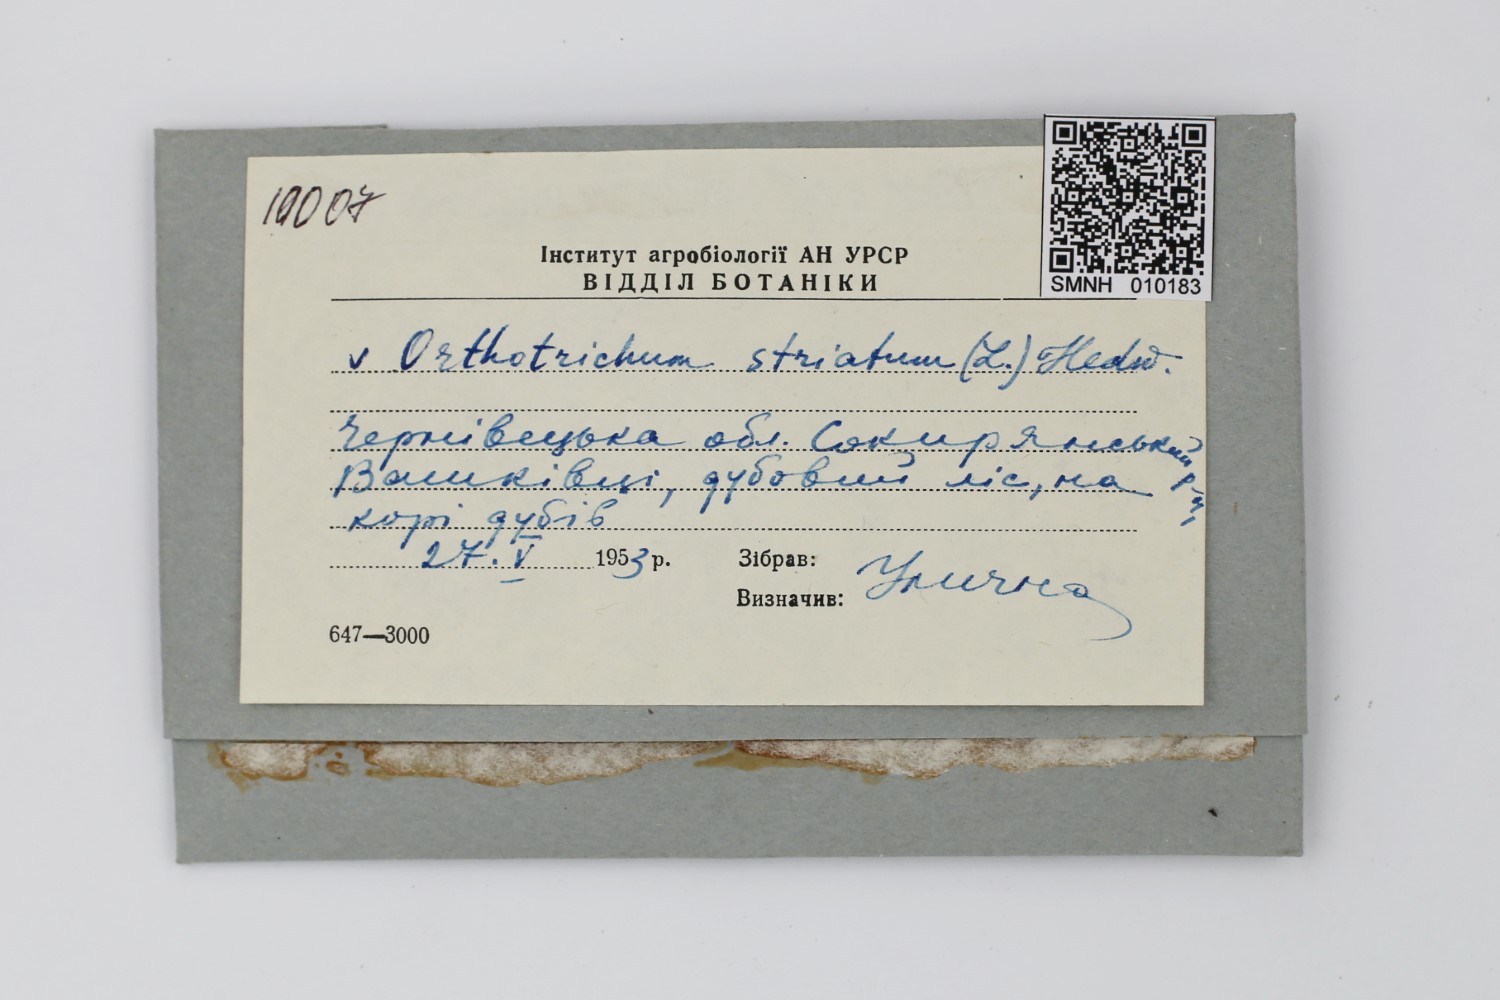 19007
SMNH 010183
Інститут агробіології АН УРСР
ВІДДІЛ БОТАНІКИ
v Orthotrichum striatum (L.) Hedw.
Чернівецька обл. Сокирянський р-н,
Вашківці, дубовий ліс, на
корі дубів
27. V 1953 р. Зібрав: Улична
Визначив:
647—3000